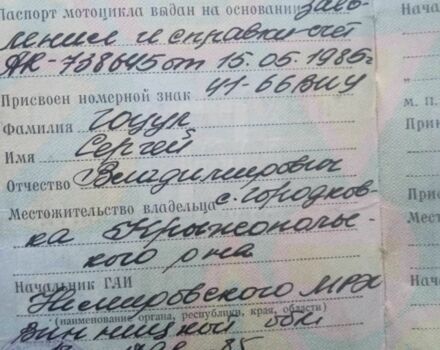 Паспорт мотоцикла выдан на основании заяв-
ления и справки-счёт
АК-738645 от 15.05.1985г
Присвоен номерной знак 41-66ВИУ
Фамилия Гоцул
Имя Сергей
Отчество Владимирович
Местожительство владельца с. Городков-
ка Крыжополь-
кого р-на
Начальник ГАИ
Немировского МРЭ
(наименование органа, республики, края, области)
Винницкой обл
85
Нача
М. П.
При
Фам
Имя
Отче
Мест
Нача